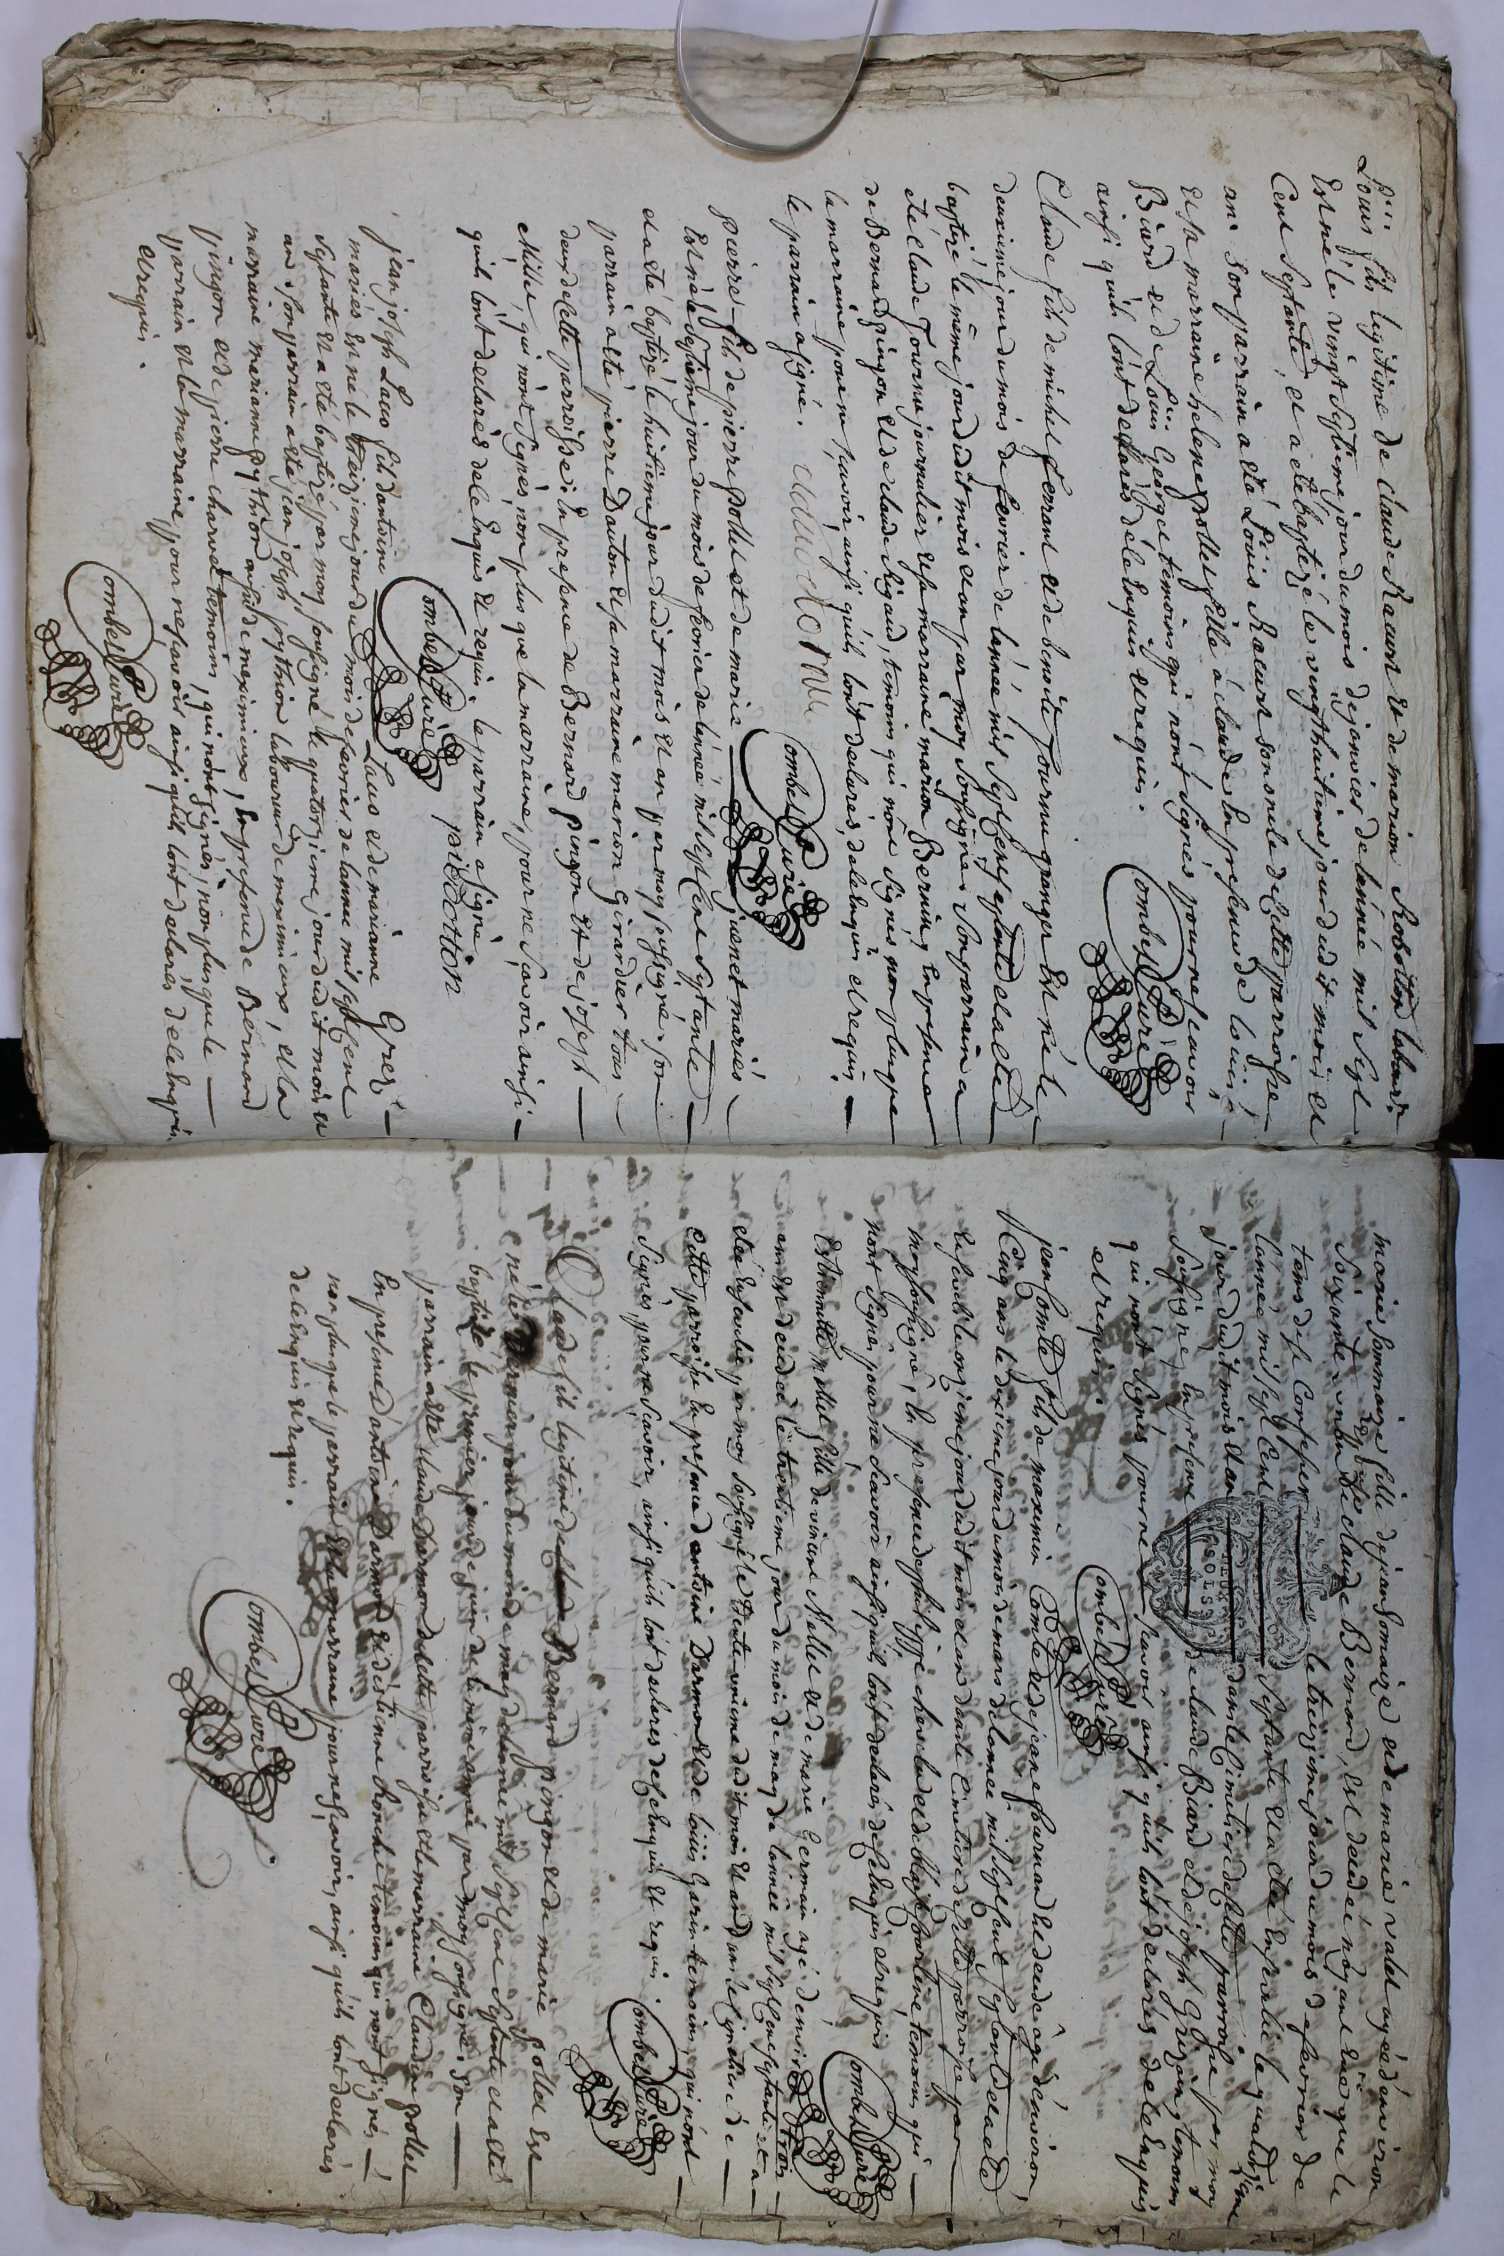 Louis fils legitime de claude Racurt et de marion Robollet labour.
Est né le vingt septieme jour du mois de janvier de lannée mil sept
Cent septante, et a eté baptizé le vingt huitieme jour dudit mois et
an. Son parrain a eté Louis Racurt son oncle de cette parroisse
et sa marraine helene pollet fille a claude En presence de louis
Biard et de Louis George temoins qui n'ont signés pour ne scavoir
ainsi qu'ils l'ont declarés de ce Enquis et requis.
Combes Curé
Claude fils de michel ferrant et de benoite fournie granger Est né le
deuxieme jour du mois de fevrier de lannée mil sept Cent septante et a eté
baptizé le même jour dudit mois et an par moy soussigné son parrain a
eté claude fournie journalier et sa marraine marion Bernin, En presence
de Bernard pingon et de claude Rigaud, temoins qui n'ont signés non plus que
la marraine pour ne scavoir ainsi qu'ils l'ont declarés, de ce Enquis et requis.
le parrain a signé.
Combes Curé
pierre fils de pierre pollet et de marie juenet mariés
Est né le septieme jour du mois de fevrier de lannée mil sept Cent septante
et a eté baptizé le huitieme jour dudit mois et an par moy soussigné. son
parrain a eté pierre Dauton et sa marraine marion Girardier tous
deux de cette parroisse En presence de Bernard pingon et de joseph
Millet, qui n'ont signés, non plus que la marraine, pour ne scavoir ainsi
quils l'ont declarés de ce Enquis et requis. le parrain a signé
pie dotton
Combes Curé
jean joseph Laus fils d'antoine Laus et de marianne Grez
mariés Est né le treizieme jour du mois de fevrier de lannée mil sept Cent
septante et a eté baptizé par moy soussigné le quatorzieme jour dudit mois et
an son parrain a eté jean joseph pythion laboureur de meximieux, et la
marraine marianne pythion aussi de meximieux, En presence de Bernard
pingon et de pierre charvet temoins, qui n'ont signés, non plus que le
parrain et la marraine pour ne scavoir ainsi qu'ils l'ont declarés, de ce Enquis
et requis.
Combes Curé
marie Sommaize fille de jean Somaize et de marie valet agée d'environ
Soixante ans de claude Bernard, Est decedée n'ayant Eue que le
tems de se Confesser le treizieme jour du mois de fevrier de
lannée mil sept Cent septante et a eté Enterrée le quatorzieme
jour dudit mois et an dans le Cimetiere de cette parroisse par moy
soussigné, En presence de claude Biard et de joseph Grizon, temoins
qui n'ont signés pour ne scavoir ainsi qu'ils l'ont declarés de ce Enquis
et requis.
Combes Curé
jean Comte fils de maximin Comte et de jeane Est decedé agé d'environ
Cinq ans le dixieme jour du mois de mars de lannée mil sept Cent septante et a eté
Enterré le onzieme jour dudit mois et an dans le Cimetiere de cette parroisse par
moy soussigné, En presence de temoins qui
n'ont signés pour ne scavoir ainsi quils l'ont declarés de ce Enquis et requis
Combes Curé
Estiennette mollet fille de vincent Mollet et de marie Germain agé d'environ trois
ans Est decedée le trentieme jour du mois de may de lannée mil sept Cent septante et a
eté Enterrée par moy soussigné le trente unieme dudit mois et an dans le Cimetiere de
cette parroisse En presence d'antoine Darmon et de louis Garin temoins, qui n'ont
signés, pour ne scavoir, ainsi quils l'ont declarés de ce Enquis et requis.
Combes Curé
Claude fils legitime de Bernard pingon et de marie pollet Est
né le dernier jour du mois de may de lannée mil sept Cent septante et a eté
baptizé le premier jour de juin de la même année par moy soussigné. Son
parrain a eté claude Darmon de cette parroisse et la marraine Claudine pollet
En presence d'antoine Darmon et d'estienne temoins qui n'ont signés
non plus que le parrain et la marraine pour ne scavoir, ainsi qu'ils l'ont declarés
de ce Enquis et requis.
Combes Curé